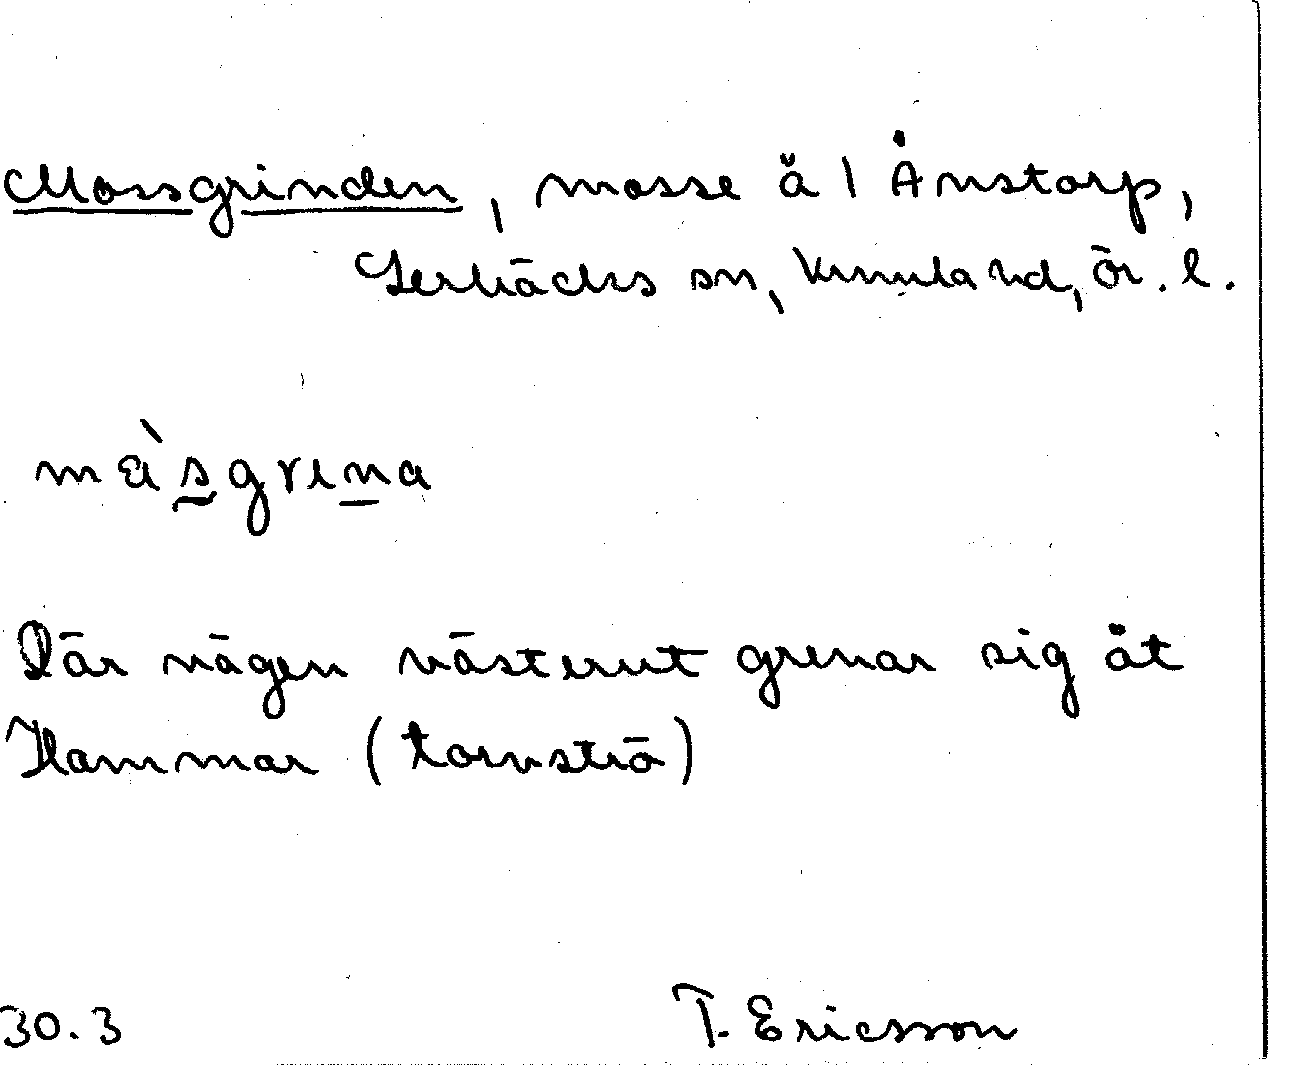 Mossgrinden, mosse å 1 Ånstorp,
Lerbäcks sn, Kumla hd, Ör. l.
måsgrina
Där vägen västerut grenar sig åt
Hammar (torvströ)
30.3 T. Ericsson